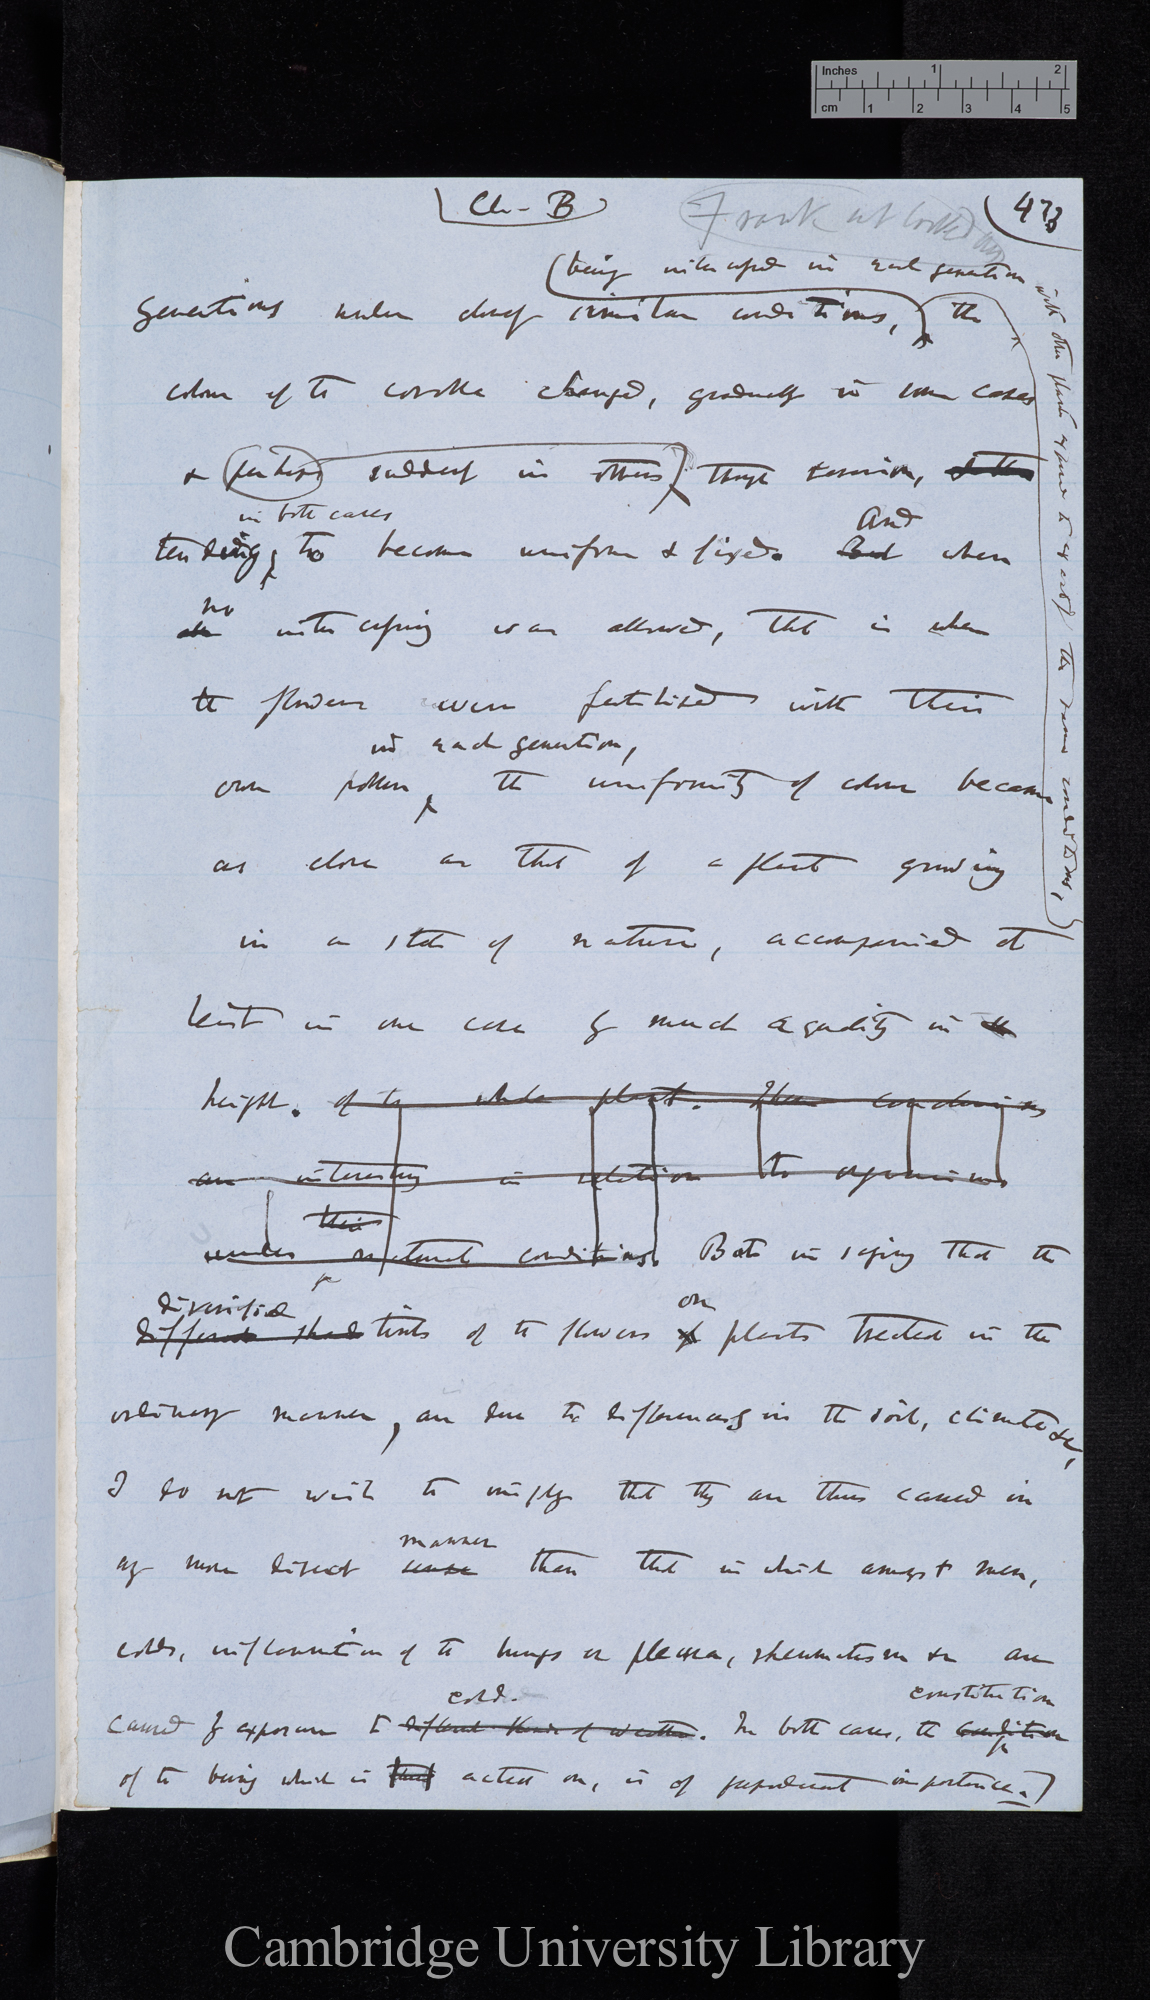 Inches 1 2
cm 1 2 3 4 5
Ch- B
473
(being intercrossed in each generation
with other plants exposed to exactly the same conditions,)
generations under closely similar conditions, the
colour of the corolla changed, gradually in some cases
& perhaps suddenly in others
in both cases
And
tending to become uniform & fixed. But when
no
intercrossing was allowed, that is when
the flowers were fertilised with their
in each generation,
own pollen, the uniformity of colour became
as close as that of a plant growing
in a state of nature, accompanied at
least in one case by much equality in the
height. of the whole plant. These conclusions
are interesting in relation to organisms
their
under natural conditions. But in saying that the
diversified
on
different shades tints of the flowers of plants treated in the
ordinary manner, are due to differences in the soil, climate &c,
I do not wish to imply that they are thus caused in
any more direct
manner
sense than that in which amongst men,
colds, inflammation of the lungs or pleura, rheumatism &c are
cold.
constitution
caused by exposure to different kinds of weather. In both cases, the condition
of the being which is acted on, is of paramount importance.)
Cambridge University Library